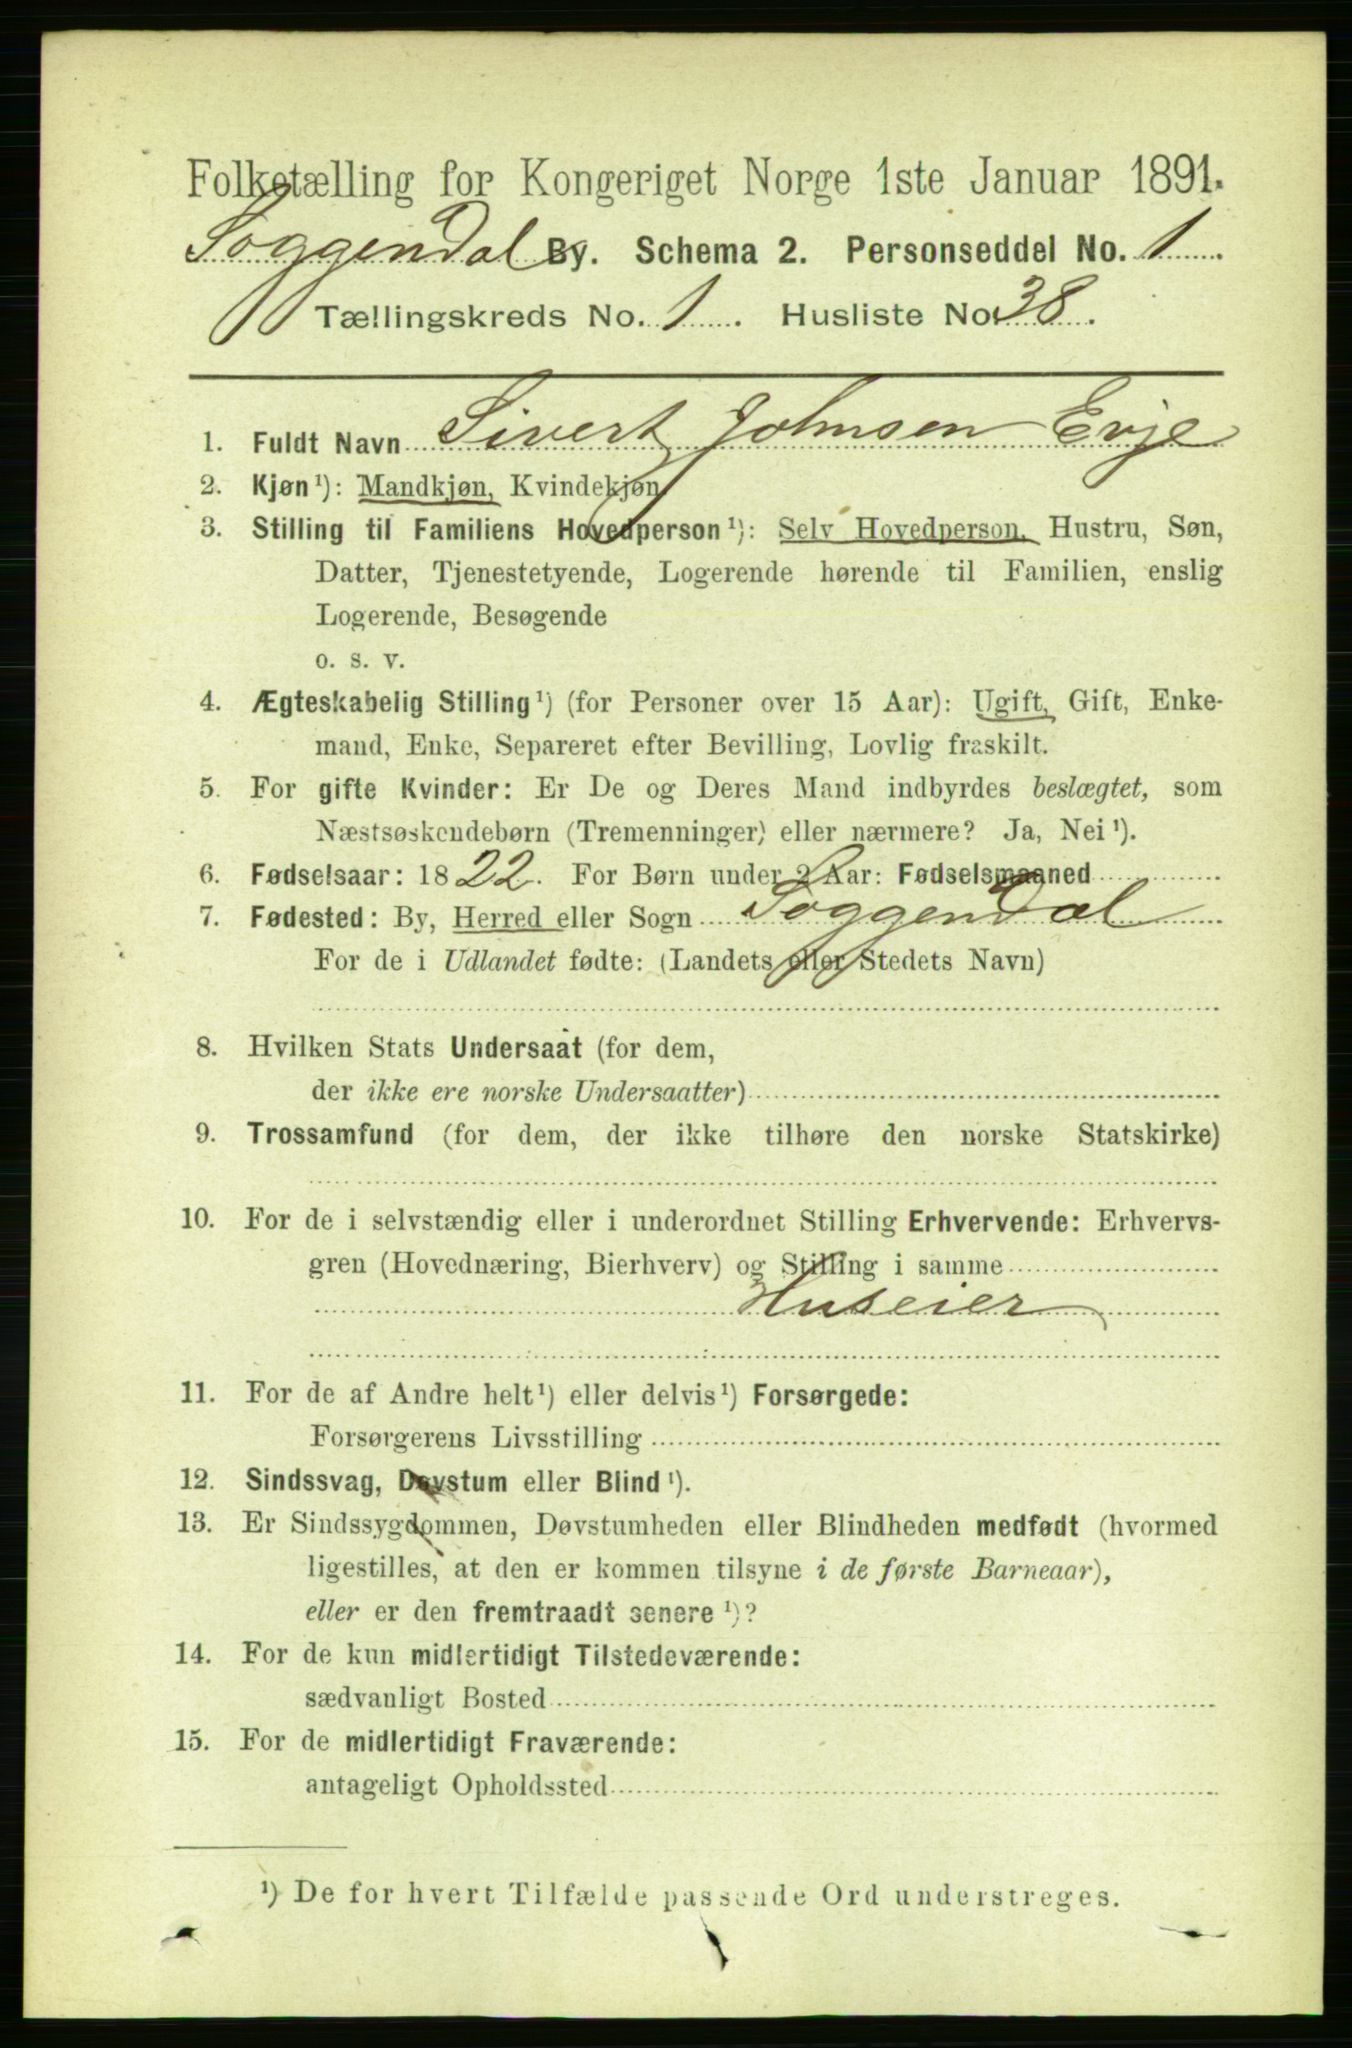 Folketælling for Kongeriget Norge 1ste Januar 1891.
Soggendal By. Schema 2. Personseddel No. 1
Tællingskreds No. 1. Husliste No. 38.
1. Fuldt Navn Sivert Johnsen Evje
2. Kjøn¹): Mandkjøn, Kvindekjøn
3. Stilling til Familiens Hovedperson¹): Selv Hovedperson, Hustru, Søn,
Datter, Tjenestetyende, Logerende hørende til Familien, enslig
Logerende, Besøgende
o. s. v.
4. Ægteskabelig Stilling¹) (for Personer over 15 Aar): Ugift, Gift, Enke-
mand, Enke, Separeret efter Bevilling, Lovlig fraskilt.
5. For gifte Kvinder: Er De og Deres Mand indbyrdes beslægtet, som
Næstsøskendebørn (Tremenninger) eller nærmere? Ja, Nei¹).
6. Fødselsaar: 1822. For Børn under 2 Aar: Fødselsmaaned
7. Fødested: By, Herred eller Sogn Soggendal
For de i Udlandet fødte: (Landets eller Stedets Navn)
8. Hvilken Stats Undersaat (for dem,
der ikke ere norske Undersaatter)
9. Trossamfund (for dem, der ikke tilhøre den norske Statskirke)
10. For de i selvstændig eller i underordnet Stilling Erhvervende: Erhvervs-
gren (Hovednæring, Bierhverv) og Stilling i samme
Huseier
11. For de af Andre helt¹) eller delvis¹) Forsørgede:
Forsørgerens Livsstilling
12. Sindssvag, Døvstum eller Blind¹).
13. Er Sindssygdommen, Døvstumheden eller Blindheden medfødt (hvormed
ligestilles, at den er kommen tilsyne i de første Barneaar),
eller er den fremtraadt senere¹)?
14. For de kun midlertidigt Tilstedeværende:
sædvanligt Bosted
15. For de midlertidigt Fraværende:
antageligt Opholdssted
¹) De for hvert Tilfælde passende Ord understreges.